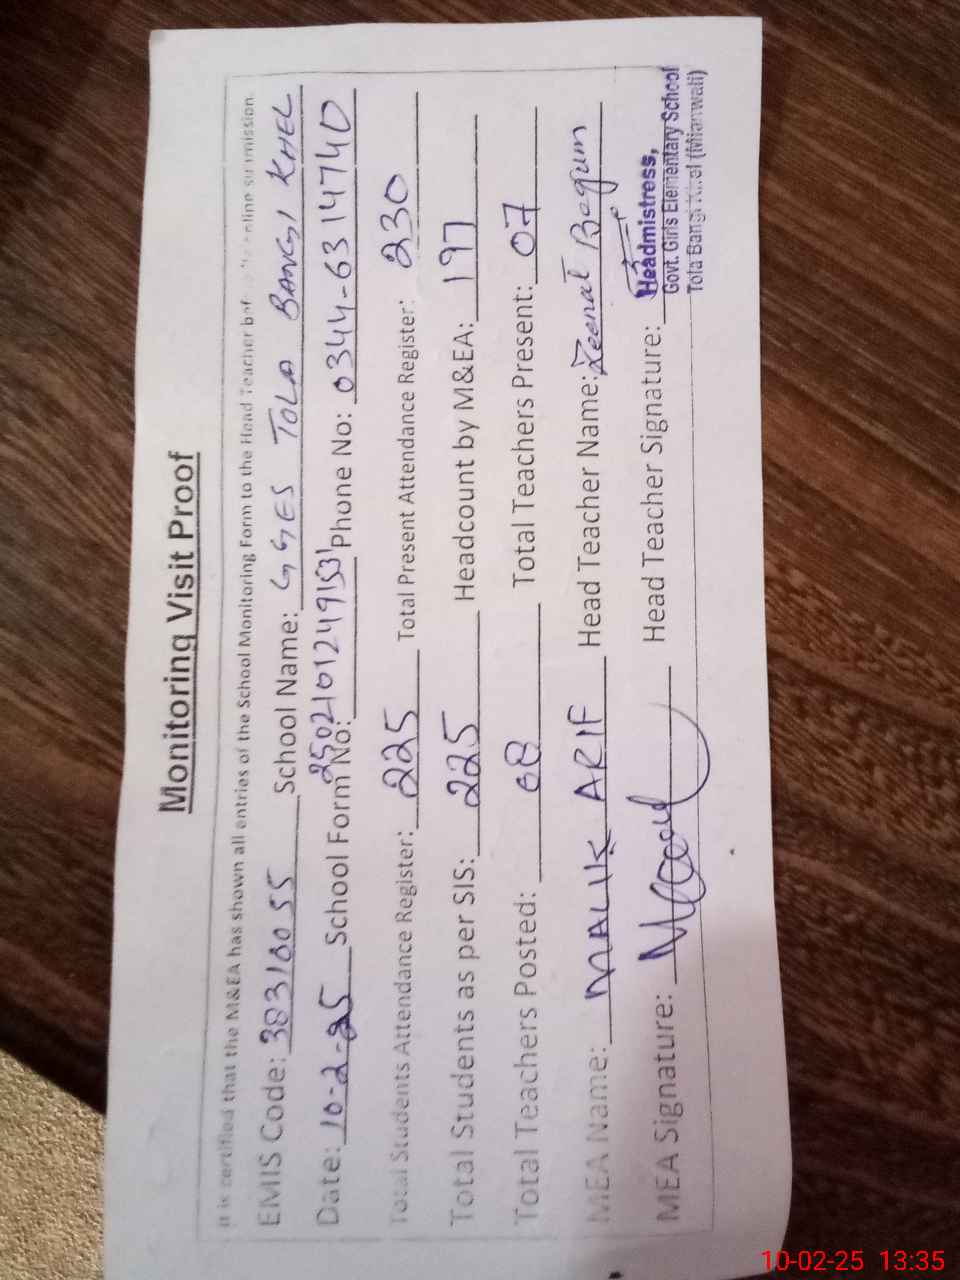 Monitoring Visit Proof
It is certified that the M&EA has shown all entries of the School Monitoring Form to the Head Teacher before online submission.
EMIS Code: 38310055 School Name: GGES TOLA BANGI KHEL
Date: 10-2-25 School Form No: 2502101249153 Phone No: 0344-6314740
Total Students Attendance Register: 225 Total Present Attendance Register: 230
Total Students as per SIS: 225 Headcount by M&EA: 197
Total Teachers Posted: 08 Total Teachers Present: 07
MEA Name: MALIK ARIF Head Teacher Name: Zeenat Begum
MEA Signature: Head Teacher Signature:
Headmistress,
Govt. Girls Elementary School
Tola Bangi Khel (Mianwali)
10-02-25 13:35